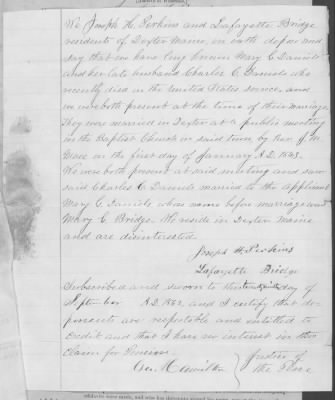 We Joseph H. Perkins and Lafayette Bridge
residents of Dexter Maine, on oath depose and
say that we have long known Mary C Daniels
and her late husband Charles C. Daniels who
recently died in the United States service, and
we were both present at the time of their marriage
They were married in Dexter at a public meeting
in the Baptist Church in said town, by Rev. J. N.
on the first day of January A.D. 1843.
We were both present at said meeting and saw
said Charles C Daniels married to the applicant
Mary C. Daniels whose name before marriage was
Mary C. Bridge. We reside in Dexter Maine
and are disinterested.
Joseph H. Perkins
Lafayette Bridge
Subscribed and sworn to this day of
September A.D. 1862, and I certify that de-
ponents are respectable and entitled to
credit and that I have no interest in this
claim for Pension.
Geo. Hamilton Justice of
the Peace